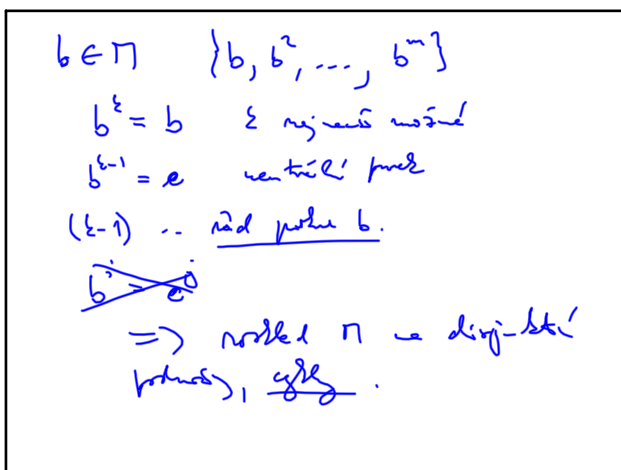 b ∈ M {b, b², ..., bᵐ}
bᵏ = b k nejmenší možné
bᵏ⁻¹ = e neutrální prvek
(k-1) .. řád prvku b.
=> rozklad M na disjunktní
podmnožiny, cykly.